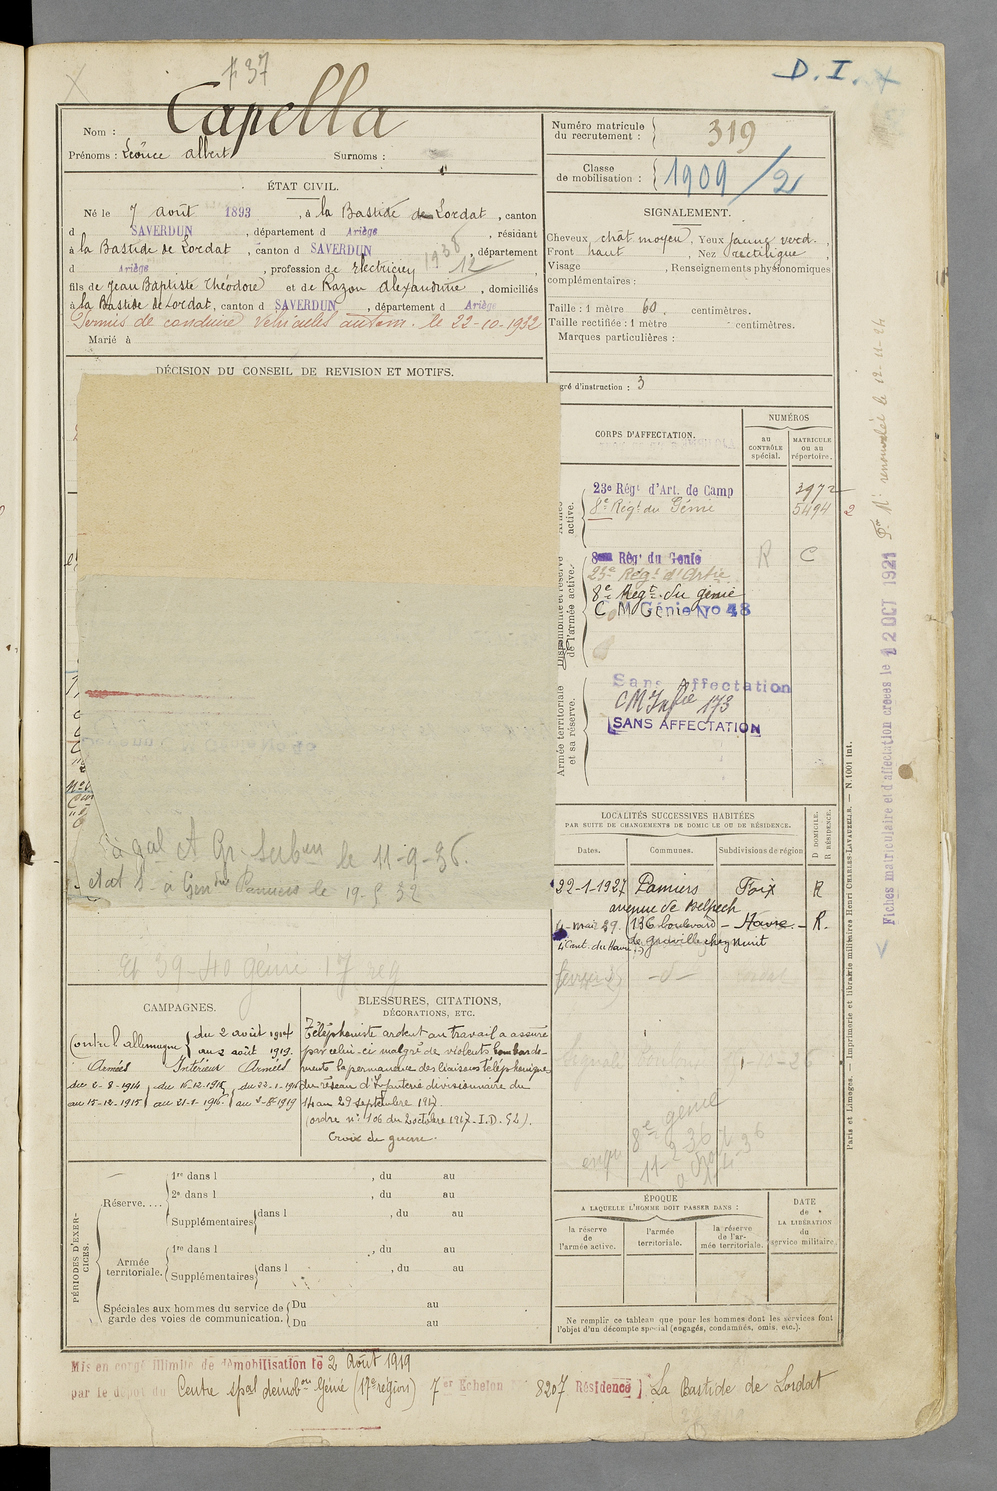 D. I.
Capella
Nom :
Prénoms : Léonce albert
Surnoms :
Numéro matricule
du recrutement :
319
Classe
de mobilisation :
1909/2
ÉTAT CIVIL.
Né le 7 août 1893, à la Bastide de Lordat, canton
d SAVERDUN, département d Ariège, résidant
à la Bastide de Lordat, canton d SAVERDUN, département
d Ariège, profession de Electricien
fils de Jean Baptiste Théodore et de Razou Alexandrine, domiciliés
à la Bastide de Lordat, canton d SAVERDUN, département d Ariège
Permis de conduire Vehicules autom. le 22-10-1932
Marié à
SIGNALEMENT.
Cheveux chât moyen, Yeux jaune verd.,
Front haut, Nez rectiligne,
Visage , Renseignements physionomiques
complémentaires :
Taille : 1 mètre 60, centimètres.
Taille rectifiée : 1 mètre centimètres.
Marques particulières :
DÉCISION DU CONSEIL DE REVISION ET MOTIFS.
gré d'instruction : 3
CORPS D'AFFECTATION.
NUMÉROS
au
CONTRÔLE
spécial.
MATRICULE
ou au
répertoire.
active.
23e Régt d'Art. de Camp 3972
8e Régt du Génie 5494
Disponibilité et réserve
de l'armée active.
Régt du Génie R C
23e Régt d'Artie
8e Régt du génie
C M Génie No 48
Armée territoriale
et sa réserve.
Sans Affectation
CM Infie 173
SANS AFFECTATION
LOCALITÉS SUCCESSIVES HABITÉES
PAR SUITE DE CHANGEMENTS DE DOMICILE OU DE RÉSIDENCE.
Dates. Communes. Subdivisions de région
D DOMICILE.
R RÉSIDENCE.
22-1-1927 Pamiers Foix R
avenue de Belpech
mai 29. (136 boulevard - Havre - R.
de graville chez nuit
le 11-9-36.
Pamiers le 19-5-32
39-40 génie 17 reg
8e genie
CAMPAGNES.
Contre l'allemagne du 2 août 1914
au 2 août 1919.
Armées Intérieur Armées
du 2-8-1914 du 16-12-1915 du 22-1-1916
au 15-12-1915 au 21-1-1916 au 2-8-1919
BLESSURES, CITATIONS,
DÉCORATIONS, ETC.
Téléphoniste ardent au travail a assuré
par celui-ci malgré de violents bombarde-
ments la permanence des liaisons téléphoniques
du réseau d'Infanterie divisionnaire du
14 au 29 septembre 1917.
(ordre n° 106 du 2 octobre 1917-I.D. 52).
Croix de guerre.
PÉRIODES D'EXER-
CICES.
Réserve....
1re dans l , du au
2e dans l , du au
Supplémentaires dans l , du au
Armée
territoriale.
1re dans l , du au
Supplémentaires dans l , du au
Spéciales aux hommes du service de
garde des voies de communication.
Du au
Du au
ÉPOQUE
A LAQUELLE L'HOMME DOIT PASSER DANS :
la réserve
de
l'armée active.
l'armée
territoriale.
la réserve
de l'ar-
mée territoriale.
DATE
de
LA LIBÉRATION
du
service militaire.
Ne remplir ce tableau que pour les hommes dont les services font
l'objet d'un décompte spécial (engagés, condamnés, omis, etc.).
Mis en congé illimité de démobilisation le 2 Août 1919
par le dépôt du Centre spal démobon Génie (17e région) 7er Echelon 8207 Résidence La Bastide de Lordat
Fiches matriculaire et d'affectation créées le 12 OCT 1921
renouvelée le 12-11-24
Paris et Limoges. — Imprimerie et librairie militaires Henri CHARLES-LAVAUZELLE. — N. 1001 int.